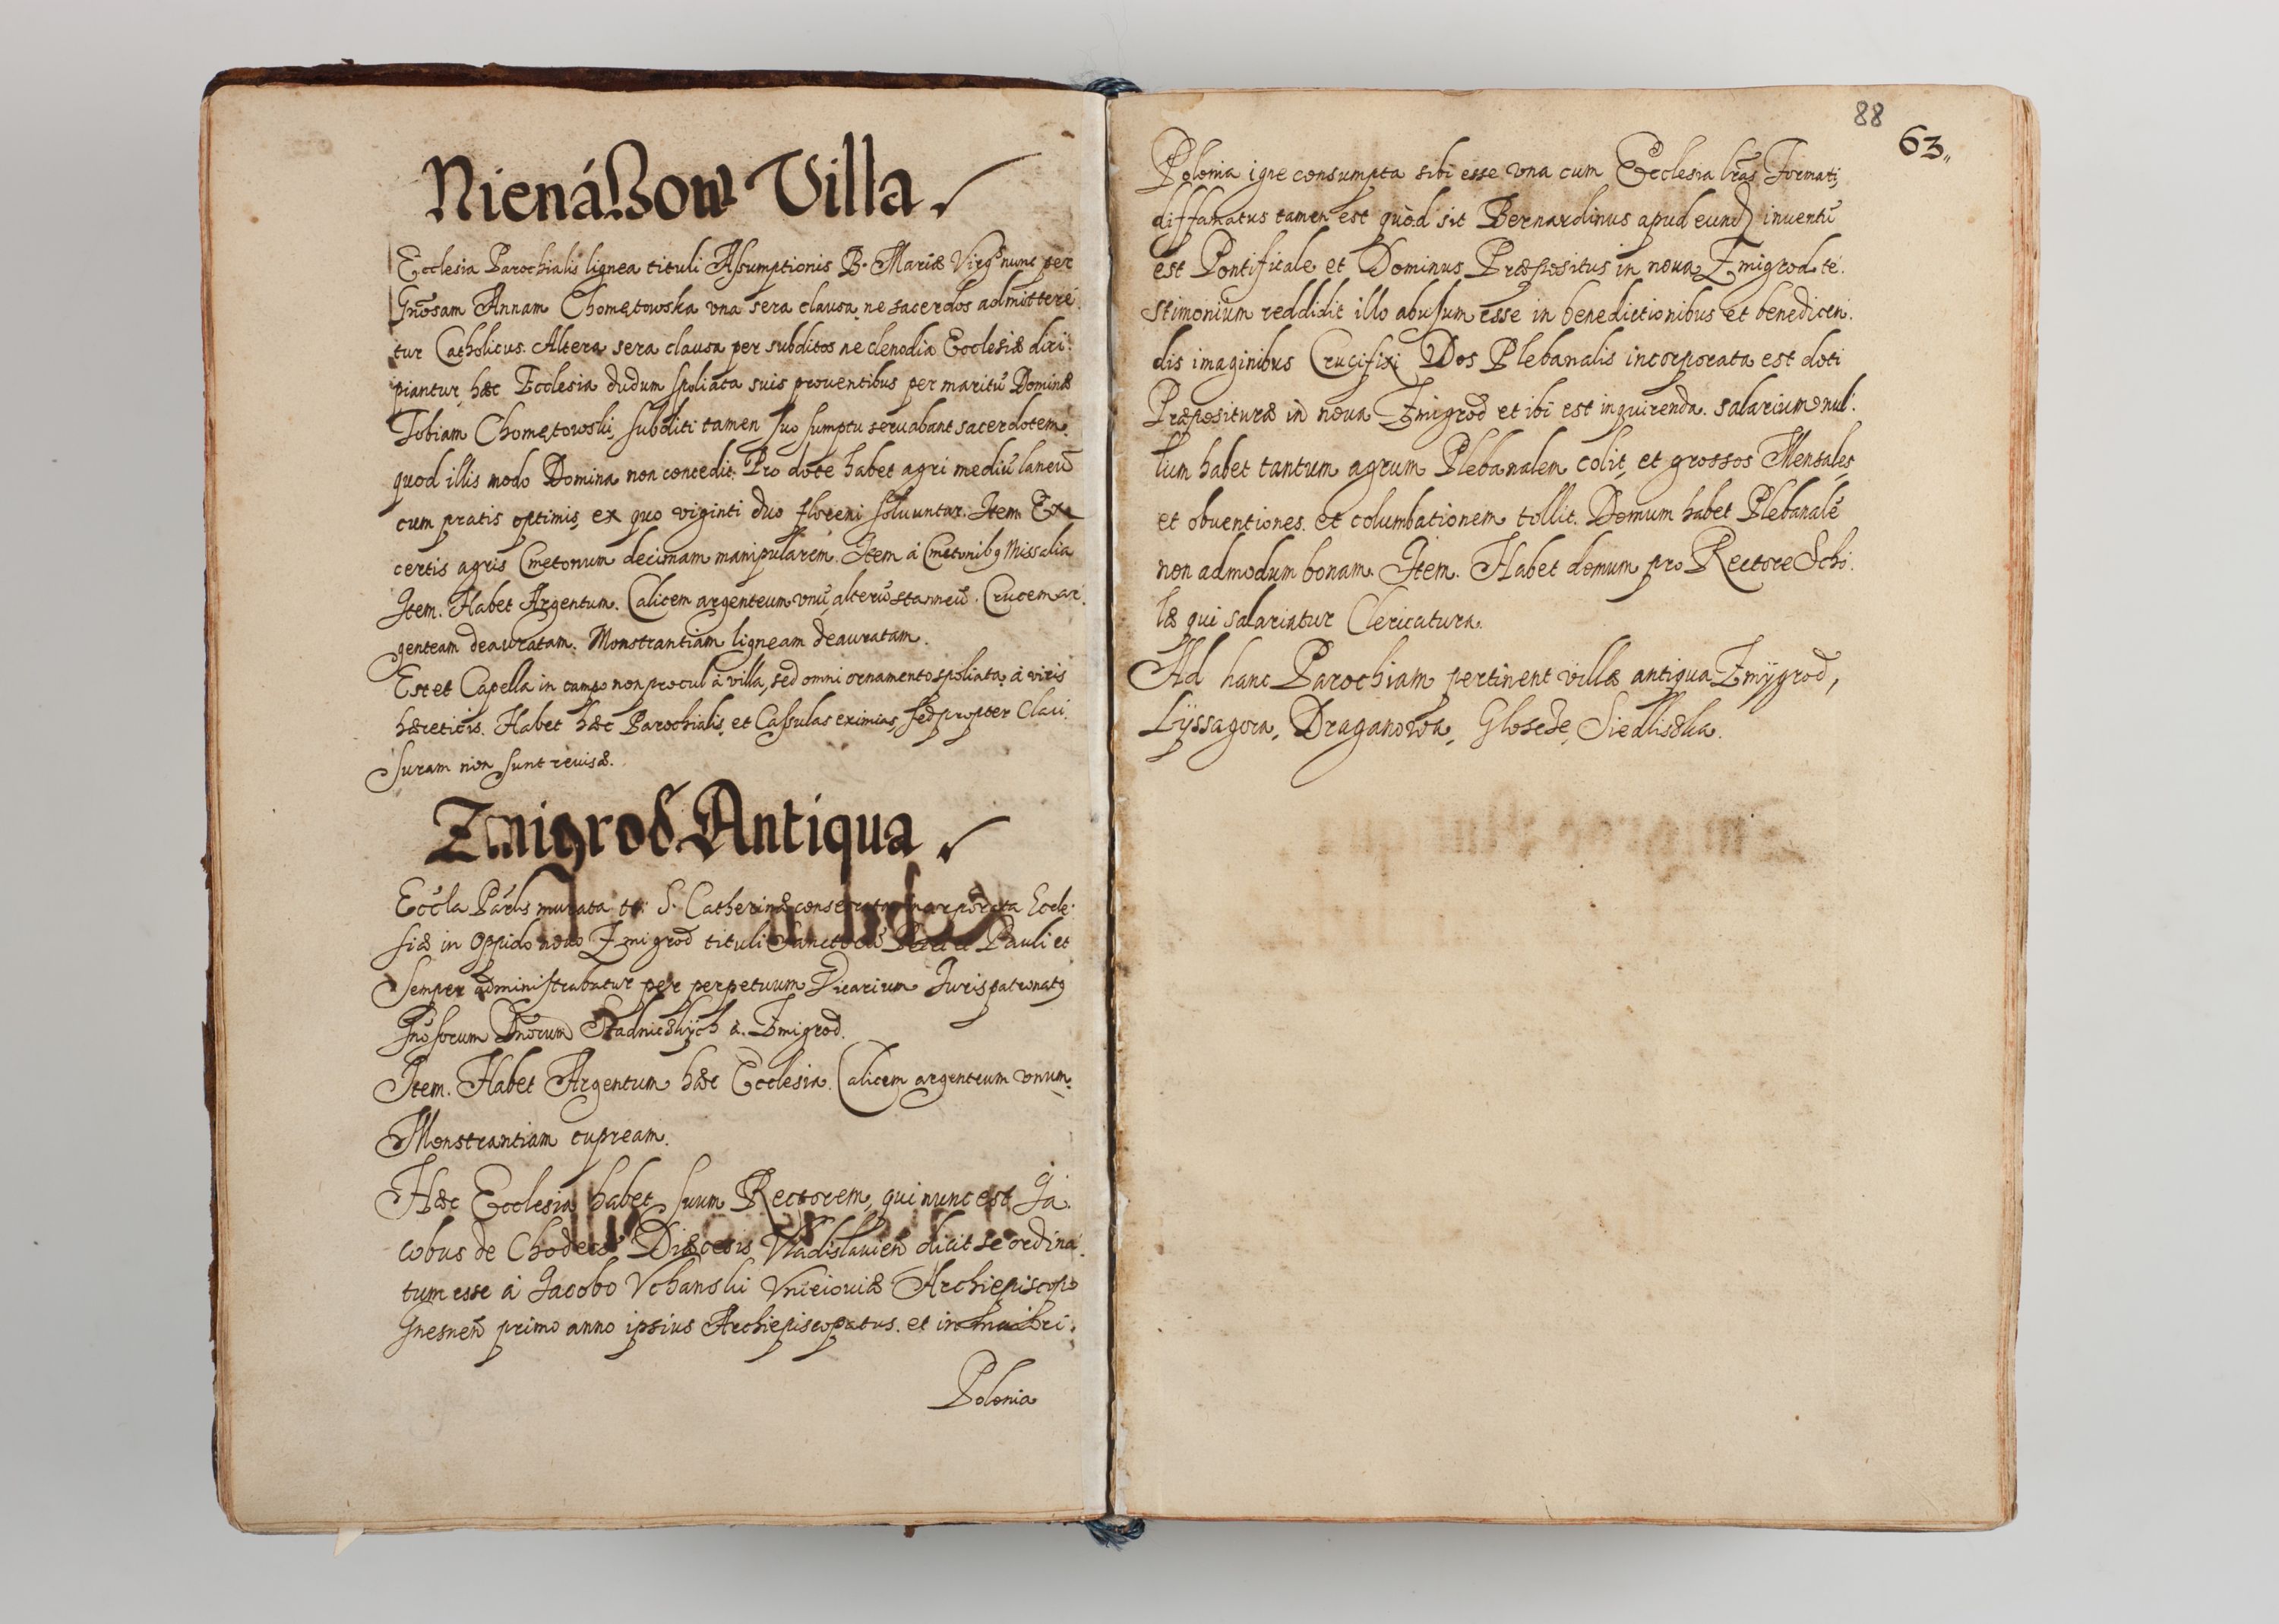 Nienáßow Villa
Ecclesia Parochialis lignea tituli Assumptionis B. Mariæ Virg. nunc per
Gnosam Annam Chomętowska vna sera clausa, ne sacerdos admittere
tur Catholicus. Altera sera clausa per subditos ne clenodia Ecclesiæ diri:
piantur, hæc Ecclesia dudum spoliata suis prouentibus per maritū Dominæ
Tobiam Chomętowski, subditi tamen suo sumptu seruabant sacerdotem,
quod illis modo Domina non concedit. Pro dote habet agri mediū laneū
cum pratis optimis, ex quo viginti duo floreni soluuntur. Item Ex
certis agris Cmetonum decimam manipularem. Item à Cmetonibq Missalia
Item. Habet Argentum. Calicem argenteum vnū, alterū stanneū. Crucem ar:
genteam deauratam. Monstrantiam ligneam deauratam.
Est et Capella in campo non procul à villa, sed omni ornamento spoliata, à viris
hæreticis. Habet hæc Parochialis, et Cassulas eximias, sed propter Clau:
suram non sunt reuisæ.
Zmigrod Antiqua
Eccla Parlis murata tt: S. Catherinæ consecrata incorporata Eccle:
siæ in Oppido nouo Zmigrod tituli Sanctorū Petri et Pauli et
Semper administrabatur per perpetuum Vicarium Iurispatronatq
Gnosorum Dnorum Stadniczkÿch à. Zmigrod.
Item. Habet Argentum hæc Ecclesia. Calicem argenteum vnum.
Monstrantiam cupream.
Hæc Ecclesia habet suum Rectorem, qui nunc est Ja:
cobus de Chodecz Diæcesis Vladislauien dicit se ordina:
tum esse à Jacobo Vchanski Vnieiouiæ Archiepiscopo
Gnesnen primo anno ipsius Archiepiscopatus. et in
Polonia
88
63
Polonia igne consumpta sibi esse vna cum Ecclesia lras Formati,
diffamatus tamen est quòd sit Bernardinus apud eund inventū
est Pontificale et Dominus Præpositus in noua Zmigrod te:
stimonium reddidit illo abusum esse in benedictionibus et benedicen:
dis imaginibus Crucifixi Dos Plebanalis incorporata est doti
Præposituræ in noua Zmigrod et ibi est inquirenda. Salarium nul:
lum habet tantum agrum Plebanalem colit, et grossos Mensales
et obuentiones. et columbationem tollit. Domum habet Plebanalē
non admodum bonam. Item. Habet domum pro Rectore Scho:
læ qui salariatur Clericatura.
Ad hanc Parochiam pertinent villæ antiqua Zmÿgrod,
Lÿssagora, Draganowa, Glosede, Siedliszka.